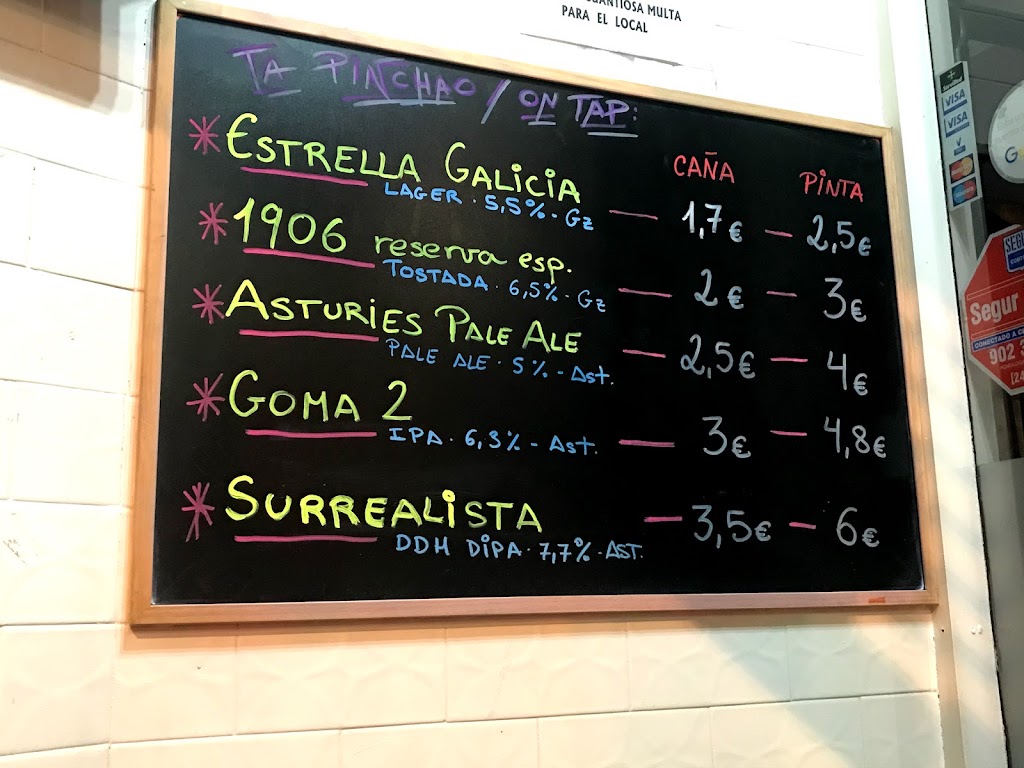 CUANTIOSA MULTA
PARA EL LOCAL
TA PINCHAO / ON TAP:
* ESTRELLA GALICIA
LAGER · 5,5% - Gz
CAÑA PINTA
— 1,7€ — 2,5€
* 1906 reserva esp.
TOSTADA · 6,5% - Gz
— 2€ — 3€
* ASTURIES PALE ALE
PALE ALE · 5% - Ast.
— 2,5€ — 4€
* GOMA 2
IPA · 6,3% - Ast.
— 3€ — 4,8€
* SURREALISTA
DDH DIPA · 7,7% - AST.
— 3,5€ — 6€
VISA
VISA
G
Segur
902